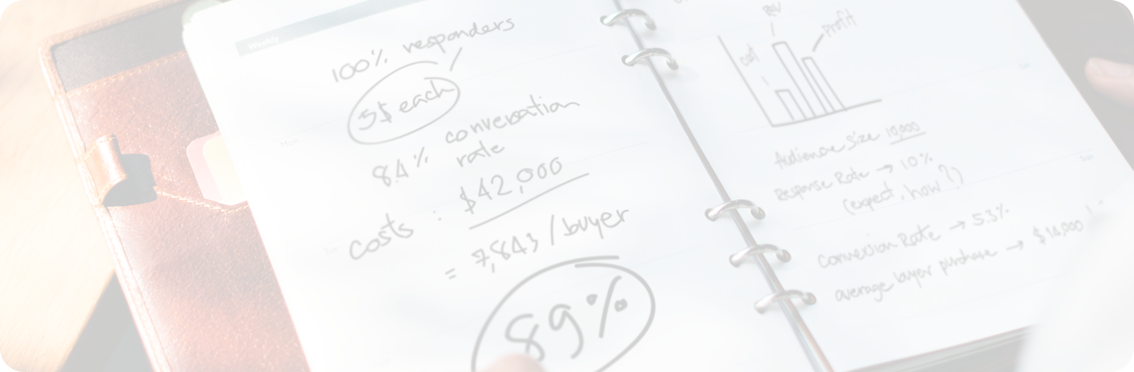 100% responders
5$ each
8.4% conversation
rate
costs : $42,000
= 7,843 / buyer
89%
cost
rev
profit
Audience size 10,000
Response Rate → 1.0%
(expect, how?)
conversion Rate → 5.3%
average buyer purchase → $14,000